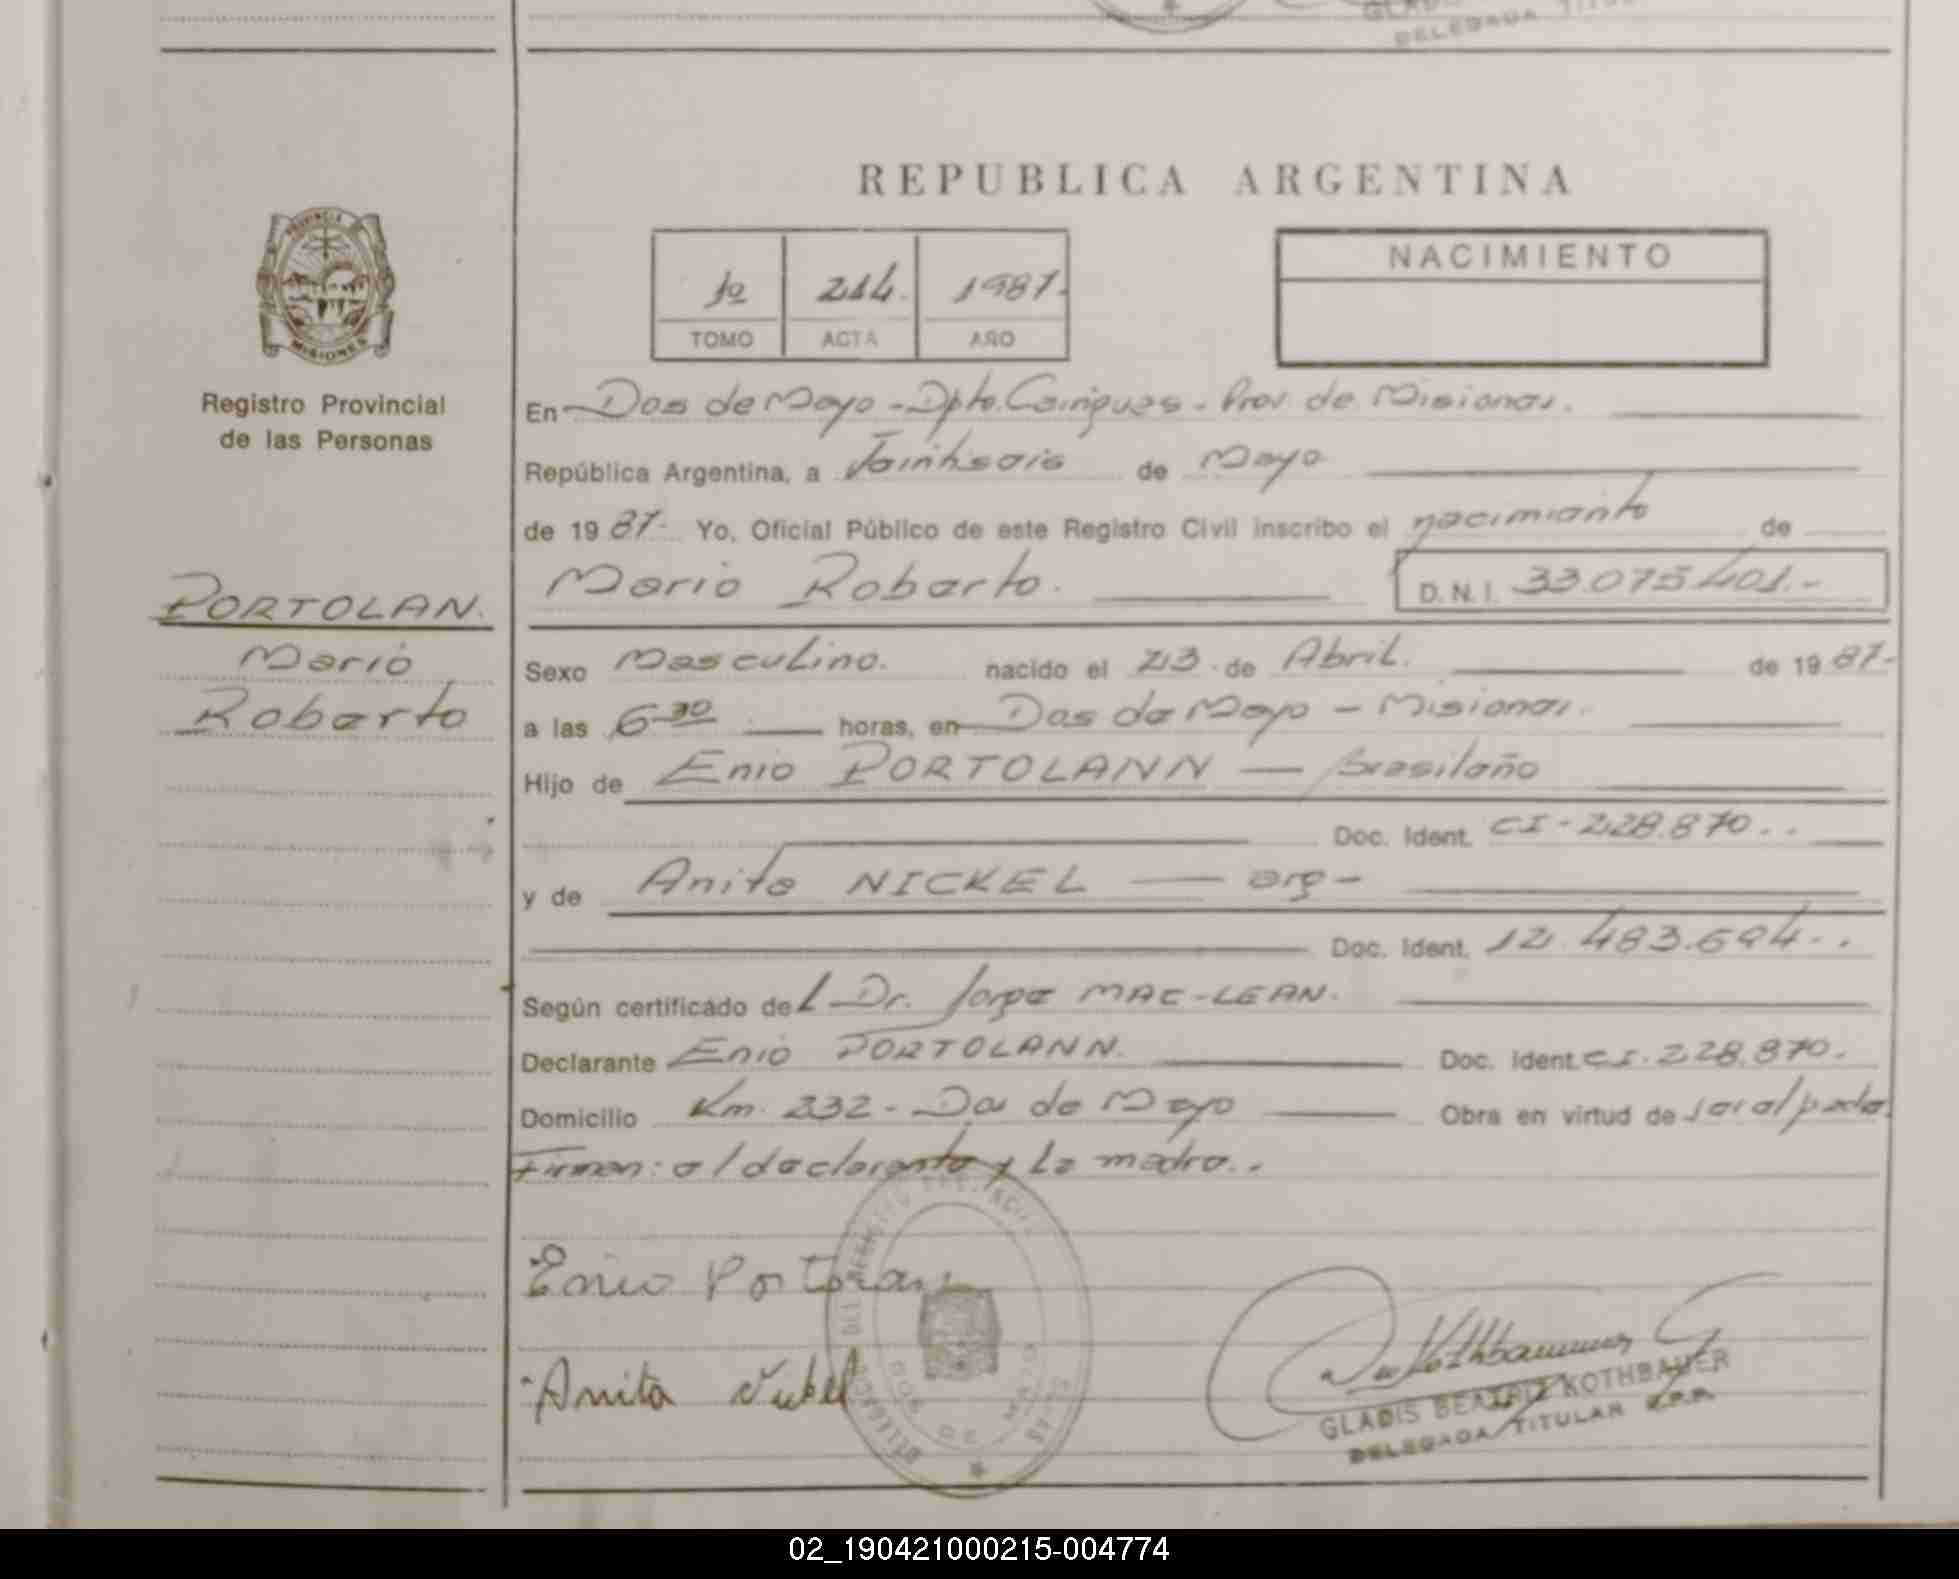 GLADIS
DELEGADA TITULAR
REPUBLICA ARGENTINA
PROVINCIA DE
MISIONES
Registro Provincial
de las Personas
1º 214. 1987.
TOMO ACTA AÑO
NACIMIENTO
En Dos de Mayo - Dpto. Cainguas - Prov. de Misiones.
República Argentina, a Veintiseis de Mayo
de 19 87- Yo, Oficial Público de este Registro Civil inscribo el nacimiento de
PORTOLAN.
Mario
Roberto
Mario Roberto. D.N.I. 33.075.401.-
Sexo Masculino. nacido el 23 de Abril. de 19 87-
a las 6 30 horas, en Dos de Mayo - Misiones.
Hijo de Enio PORTOLANN — brasileño
Doc. Ident. CI - 228.870..
y de Anita NICKEL — arg -
Doc. Ident. 12.483.694-.
Según certificado del Dr. Jorge MAC-LEAN.
Declarante Enio PORTOLANN. Doc. Ident. CI. 228.870.
Domicilio Km. 232 - Dos de Mayo Obra en virtud de ser el padre.
Firman: el declarante y la madre..
Enio Portolan
Anita Nikel
DOS DE MAYO
GLADIS BEATRIZ KOTHBAUER
DELEGADA TITULAR R.P.P.
02_190421000215-004774